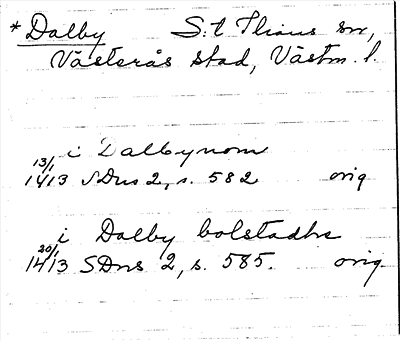 * Dalby S:t Ilians sn,
Västerås stad, Västm. l.
i Dalbynom
13/1 1413 SDns 2, s. 582 orig
i Dalby bolstadhe
20/1 1413 SDns 2, s. 585. orig.